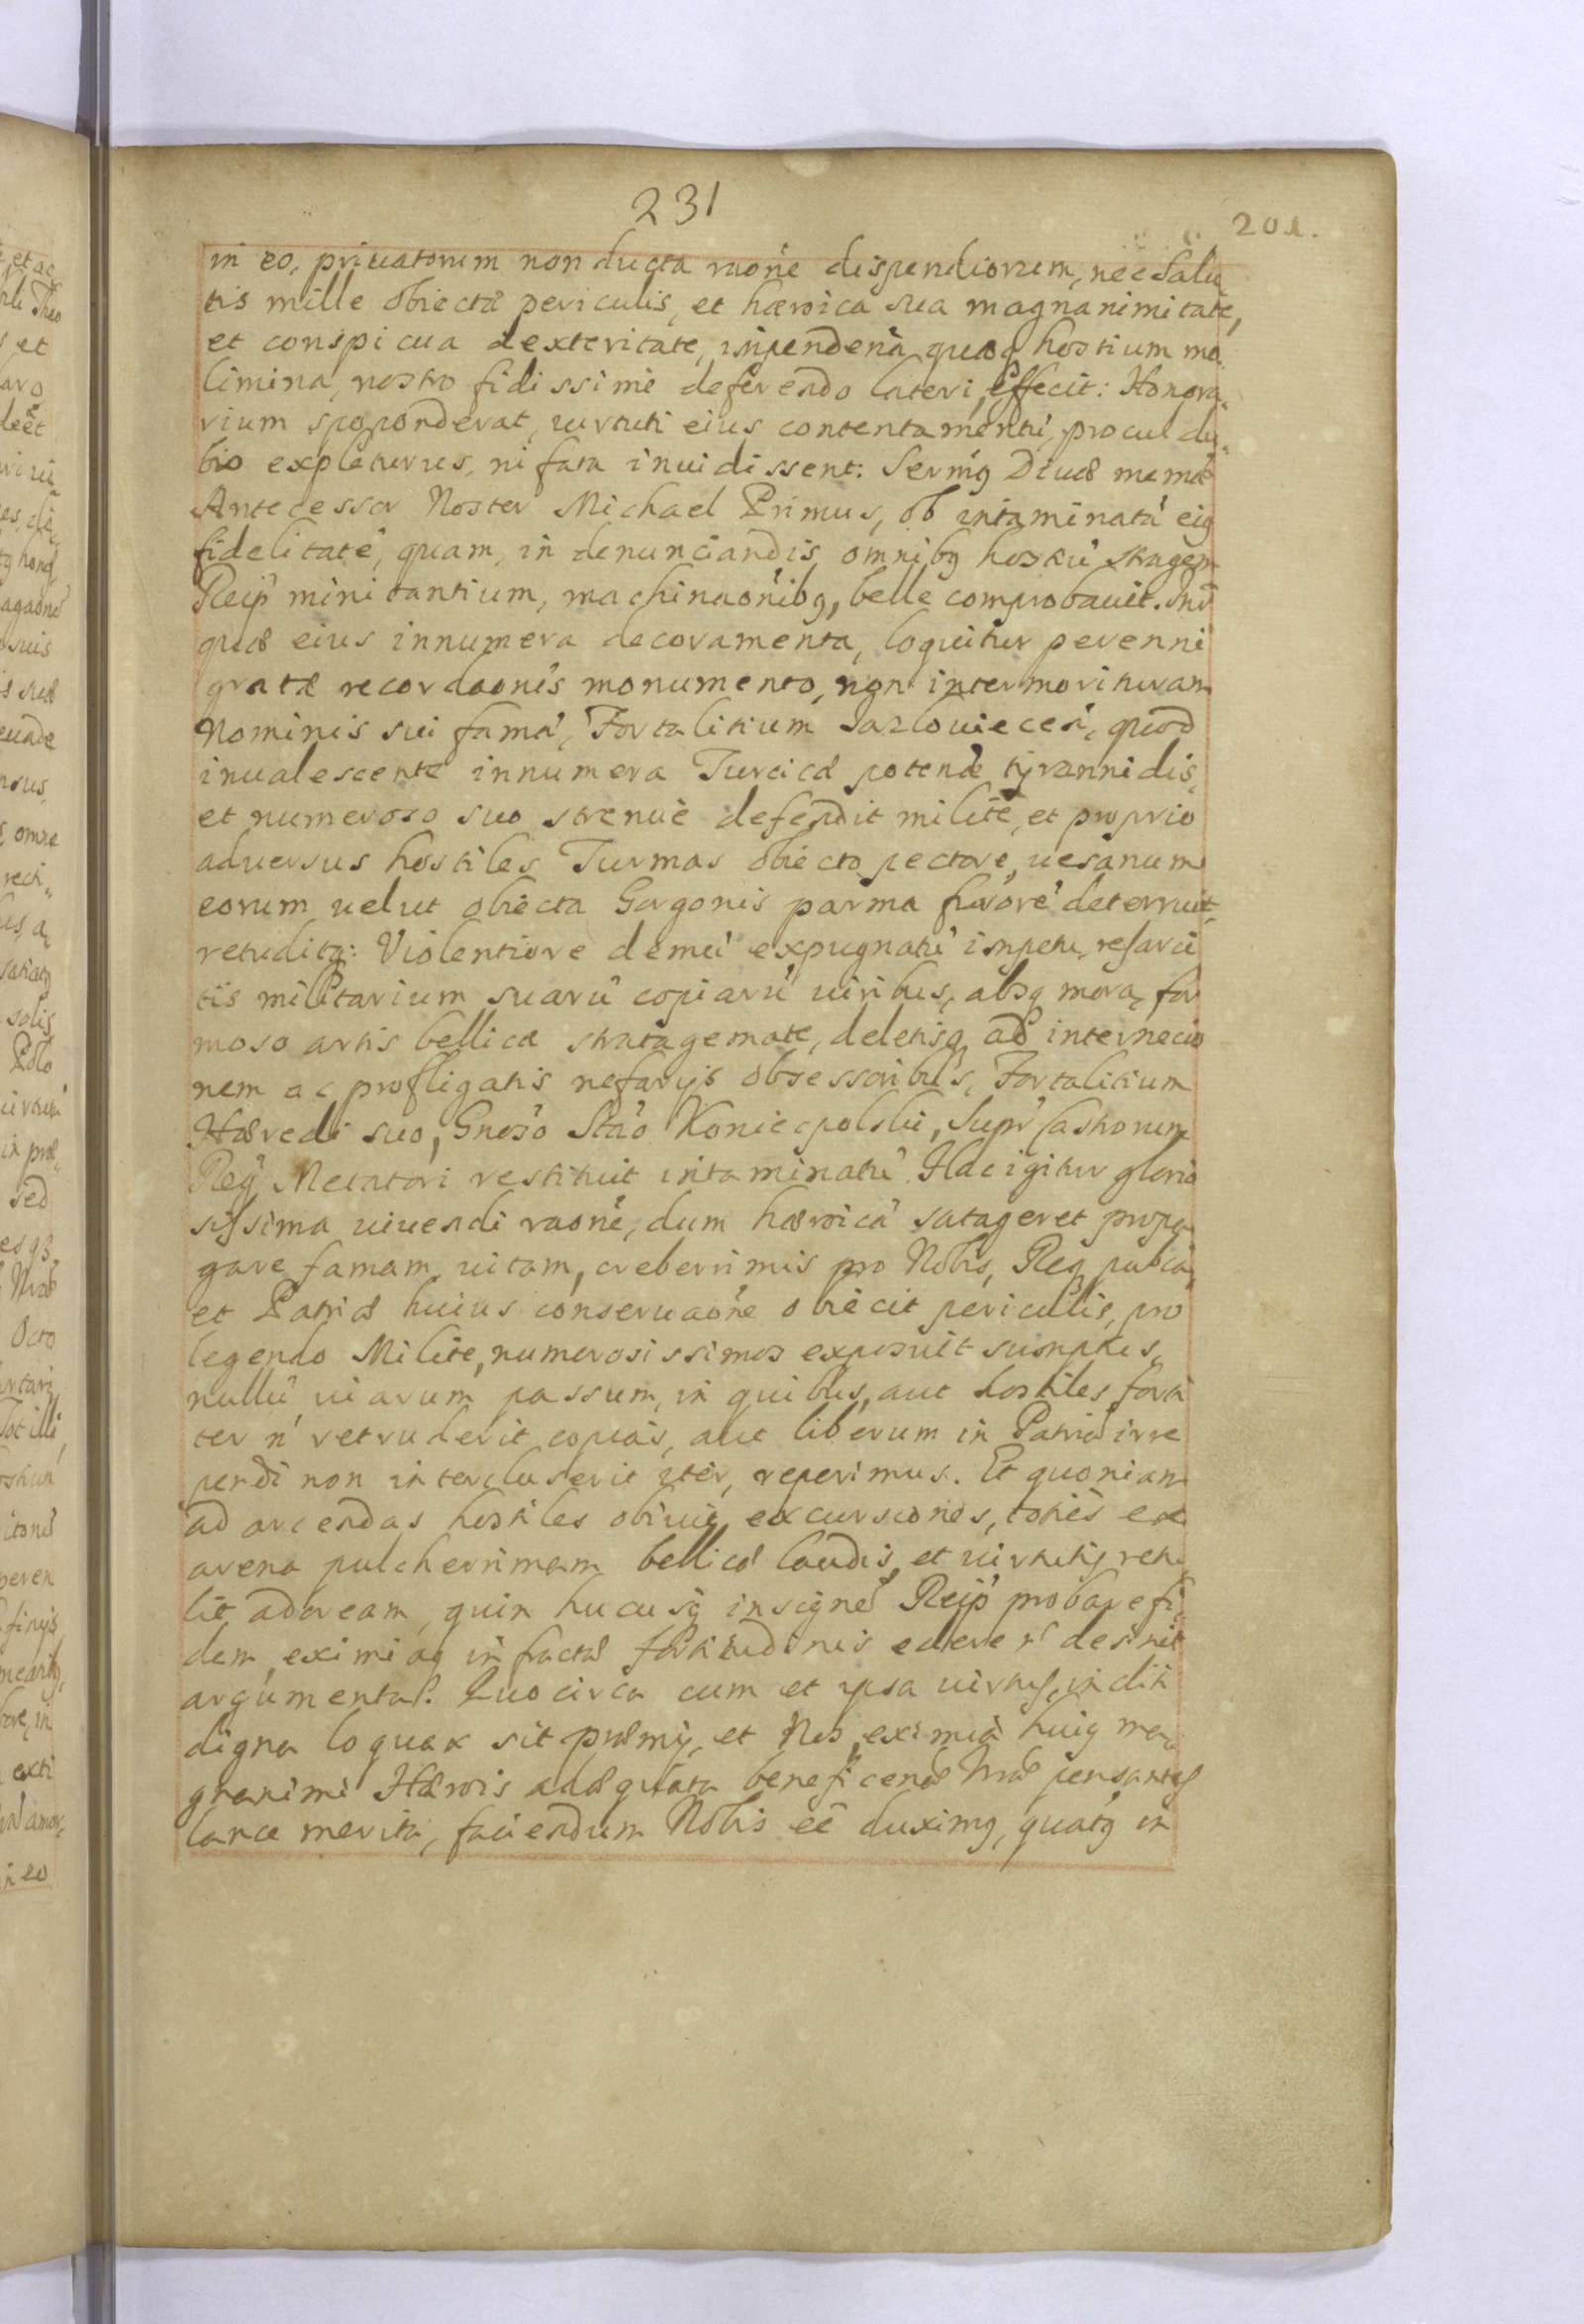 231
201.
in eo, priuatorum non ducta raoñe dispendiorum, nec Salu„
tis mille obiectæ periculis, et hæroica sua magnanimitate,
et conspicua dexteritate, quæq hostium mo„
limina, nostro fidissimè deferendo lateri, effecit: Honora„
rium spoponderat, uirtuti eius contentamentū, procul du„
bio expleturus, ni fata inuidissent: Sermg Diuæ
Antecessor Noster Michael Primus, ob intaminatā eig
fidelitatē, quam, in denunciandis, omnibg hostiū stragem
Reip minitantium, machinaoñibg, belle comprobauit.
quæ eius innumera decoramenta, loquitur perenni
gratæ recordaonis monumento, non intermorituram
Nominis sui famā, Fortalitium quod
inualescente innumera Turcicæ potenæ tyrannidis,
et numeroso suo strenuè defendit milite, et proprio
aduersus hostiles Turmas obiecto pectore, uesanum
eorum uelut obiecta Gorgonis parma furorē deterruit,
retuditq: Violentiore demū expugnatū impetu, resarci
tis militarium suarū copiarū uiribus, absq mora, for
moso artis bellicæ stratagemate, deletisq ad internecio
nem ac profligatis nefarijs obsessoribus, Fortalitium
Hæredi suo, Gnoso Stao Koniecpolski, Supr Castrorum
Reg Metatori restituit intaminatū. Hac igitur glorio
sissima uiuendi raone, dum hæroicā satageret propa
gare famam, uitam, creberrimis pro Nobis, Reg
et Patriæ huius conseruaoñe obiecit periculis, pro
legendo Milite, numerosissimos exposuit sumptus,
nullū uiarum passum, in quibus, aut hostiles forti
ter ñ retruderit copias, aut liberum in Patriā irre
pendi non intercluserit iter, reperimus. Et quoniam
ad arcendas hostiles excursiones, toties ex
arena pulcherrimam bellicæ laudis, et uirtutis retu
lit adoream, quin hucusq insignē Reip probare fi„
dem, eximiaq infractæ fortitudinis edere ñ desinit
argumenta. Quocirca cum et ipsa uirtus,
digna loquax sit præmij, et Nos, eximia huig ma„
gnanimi Hærois adæquata beneficenæ Nræ pensantes
lance merita, faciendum Nobis eē duximg, quatg in